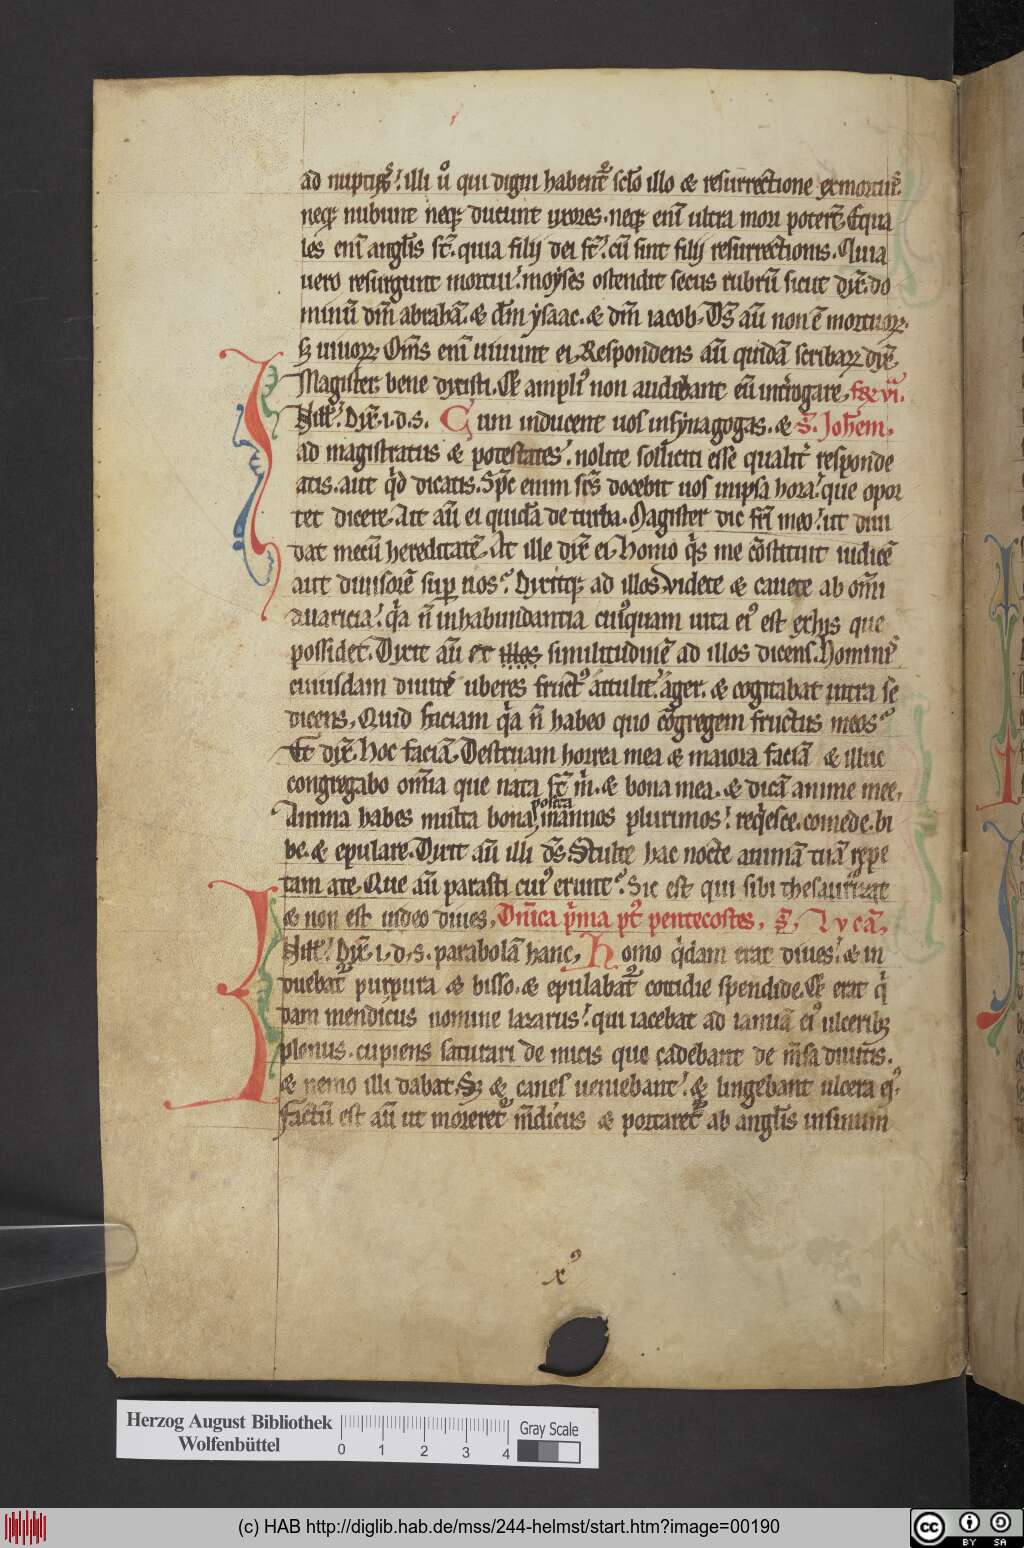 ad nuptias. illi u̓ qui digni habent᷑ sclo illo ⁊ resurrectione ex mortuis.
neqꝫ nubunt neqꝫ ducunt uxores. neqꝫ eni᷑ ultra mori potert̄ Equa
les eni᷑ angl̄is st̄. quia filij dei st̄. cū sint filij resurrectionis. Quia
uero resurgunt mortui. moyses ostendit secus rubrū sicut dix̄. do
minū dm̄ abrahā. ⁊ dm̄ ysaac. ⁊ dm̄ iacob. Ds̄ aū non ē mortuoꝝ.
sꝫ uiuoꝝ. Om̄s eni᷑ uiuunt ei. Respondens aū quidā scribaꝝ dix̄.
Magister bene dixisti. Et ampli᷒ non audebant eū int̓rogare. fr̄ vi.
Ill̄. Dix̄. i. d. s. Cum inducent uos in synagogas. ⁊ S. Joh̄em.
ad magistratus ⁊ potestates. nolite solliciti esse qualit̓ responde
atis. aut qͥd dicatis. Sp̄c enim sc̄s docebit uos in ipsa hora. que opor
tet dicere. Ait aū ei quidā de turba. Magister dic fr̄i meo. ut diui
dat mecū hereditatē. At ille dix̄ ei. Homo qͥs me cōstituit iudicē
aut diuisorē suꝑ uos. Dixitqꝫ ad illos. Videte ⁊ cauete ab om̄i
auaricia. qͣ n̄ in habundantia cui᷒quam uita ei᷒ est ex his que
possidet. Dixit aū et illos similitudinē ad illos dicens. Hominis
cuiusdam diuitis uberes fruct᷒ attulit. ager. ⁊ cogitabat intra se
dicens. Quid faciam qͣ n̄ habeo quo cōgregem fructus meos.
Et dix̄. Hoc faciā. Destruam horrea mea ⁊ maiora faciā ⁊ illuc
congregabo om̄ia que nata st̄ m̄. ⁊ bona mea. ⁊ dicā anime mee.
posita
Anima habes multa bona in annos plurimos. reqͥesce. comede. bi
be. ⁊ epulare. Dixit aū illi ds̄. Stulte hac nocte animā tuā repe
tam a te. Que aū parasti cui᷒ erunt. Sic est qui sibi thesaurizat
⁊ non est in deo diues. Dn̄ica pͥma pt᷒ pentecostes. S. Lucā.
Ill̄. Dix̄. i. d. s. parabolā hanc. Homo qͥdam erat diues. ⁊ in
duebat᷑ purpura ⁊ bisso. ⁊ epulabat᷑ cottidie spendide. Et erat qͥ
dam mendicus nomine lazarus. qui iacebat ad ianuā ei᷒ ulceribꝫ
plenus. cupiens saturari de micis que cadebant de m̄sa diuitis.
⁊ nemo illi dabat. Sꝫ ⁊ canes ueniebant. ⁊ lingebant ulcera ei᷒.
Factū est aū ut moreret᷑ m̄dicus ⁊ portaret᷑ ab angl̄is in sinum
x᷒
Herzog August Bibliothek
Wolfenbüttel
0 1 2 3 4
Gray Scale
(c) HAB http://diglib.hab.de/mss/244-helmst/start.htm?image=00190
cc BY SA